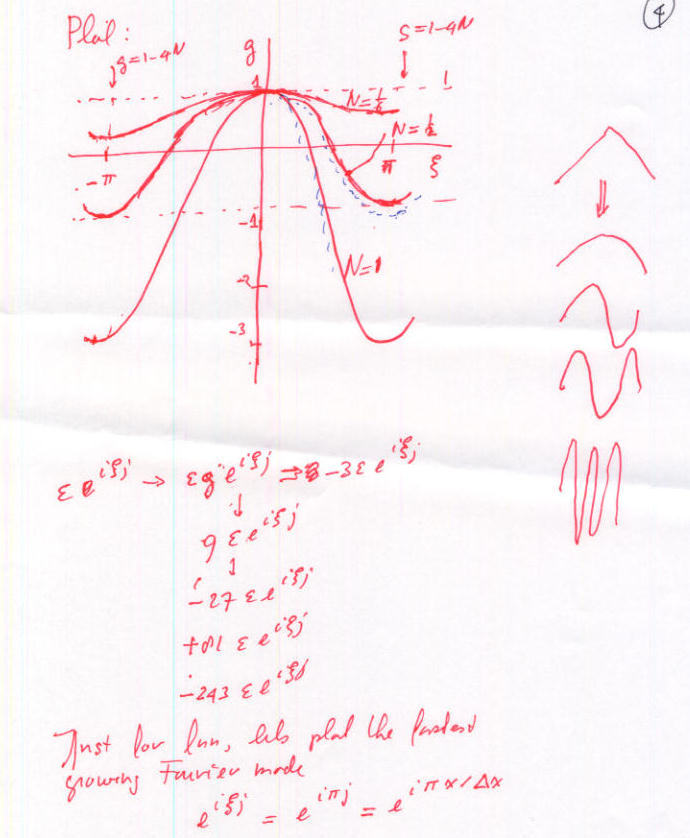 4
Plot:
g=1-4N
g
S=1-4N
1
1
N=1/2
-π
π
ξ
-1
N=1
-2
-3
εe^{iξj} → εg e^{iξj} ⇒ -3εe^{iξj}
↓
9εe^{iξj}
↓
-27εe^{iξj}
+81εe^{iξj}
-243εe^{iξj}
Just for fun, lets plot the fastest
growing Fourier mode
e^{iξj} = e^{iπj} = e^{iπx/Δx}